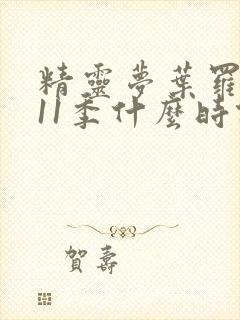 精靈夢葉羅
11季什麼時
賀壽